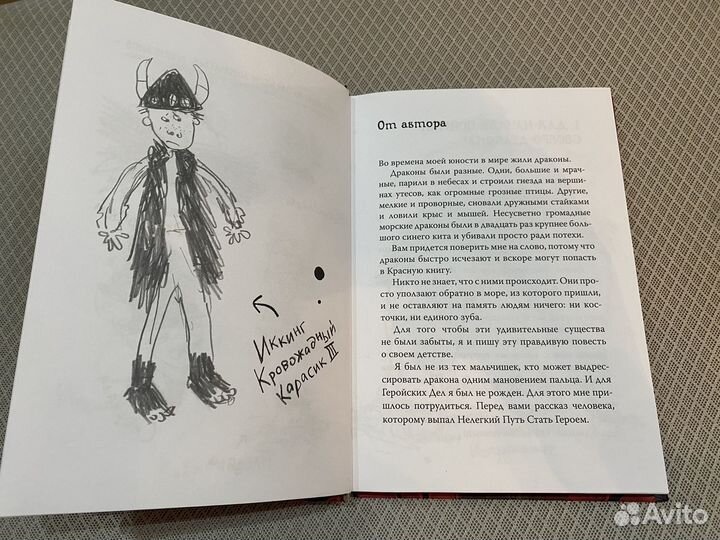 Иккинг
Кровожадный
Карасик III
От автора
Во времена моей юности в мире жили драконы.
Драконы были разные. Одни, большие и мрач-
ные, парили в небесах и строили гнезда на верши-
нах утесов, как огромные грозные птицы. Другие,
мелкие и проворные, сновали дружными стайками
и ловили крыс и мышей. Несусветно громадные
морские драконы были в двадцать раз крупнее боль-
шого синего кита и убивали просто ради потехи.
Вам придется поверить мне на слово, потому что
драконы быстро исчезают и вскоре могут попасть
в Красную книгу.
Никто не знает, что с ними происходит. Они про-
сто уползают обратно в море, из которого пришли,
и не оставляют на память людям ничего: ни ко-
сточки, ни единого зуба.
Для того чтобы эти удивительные существа
не были забыты, я и пишу эту правдивую повесть
о своем детстве.
Я был не из тех мальчишек, кто может выдрес-
сировать дракона одним мановением пальца. И для
Геройских Дел я был не рожден. Для этого мне при-
шлось потрудиться. Перед вами рассказ человека,
которому выпал Нелегкий Путь Стать Героем.
Avito